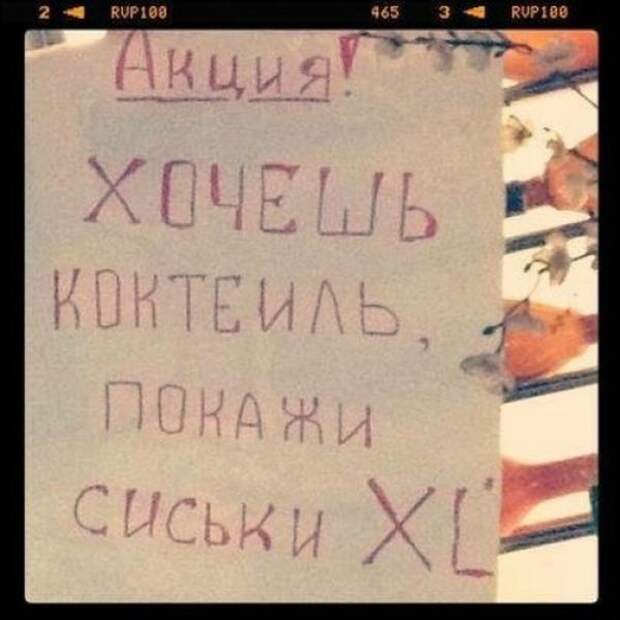 2 ◀ RVP100 465 3 ◀ RVP100
Акция!
ХОЧЕШЬ
КОКТЕИЛЬ,
ПОКАЖИ
СИСЬКИ XL